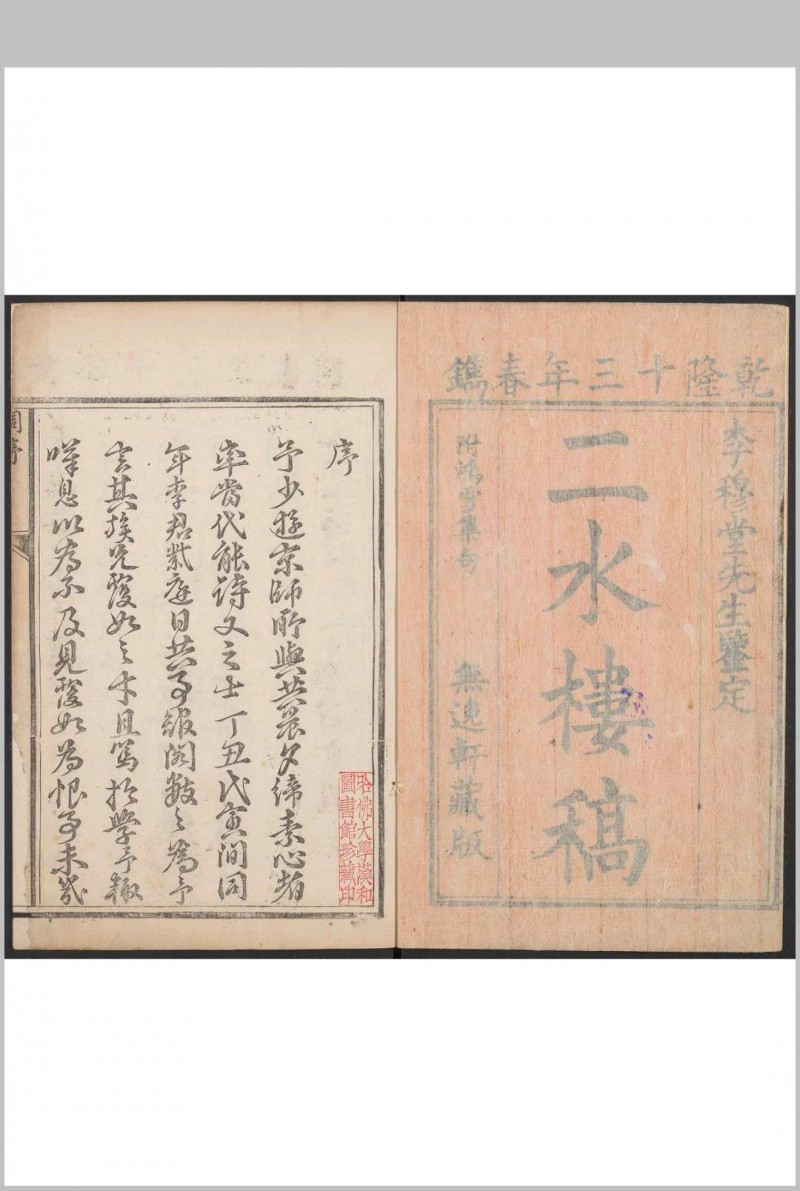 乾隆十三年春鐫
李穆堂先生鑒定
二水樓稿
附鴻雪集句
無逸軒藏版
序
予少遊京師所與共晨夕締素心者
率當代能詩文之士丁丑戊寅間同
年李君紫庭日共事綸閣數〻為予
言其族兄如之才且篤於學予輒
嘆息以為不及見如為恨事未幾
哈佛大學漢和
圖書館珍藏印